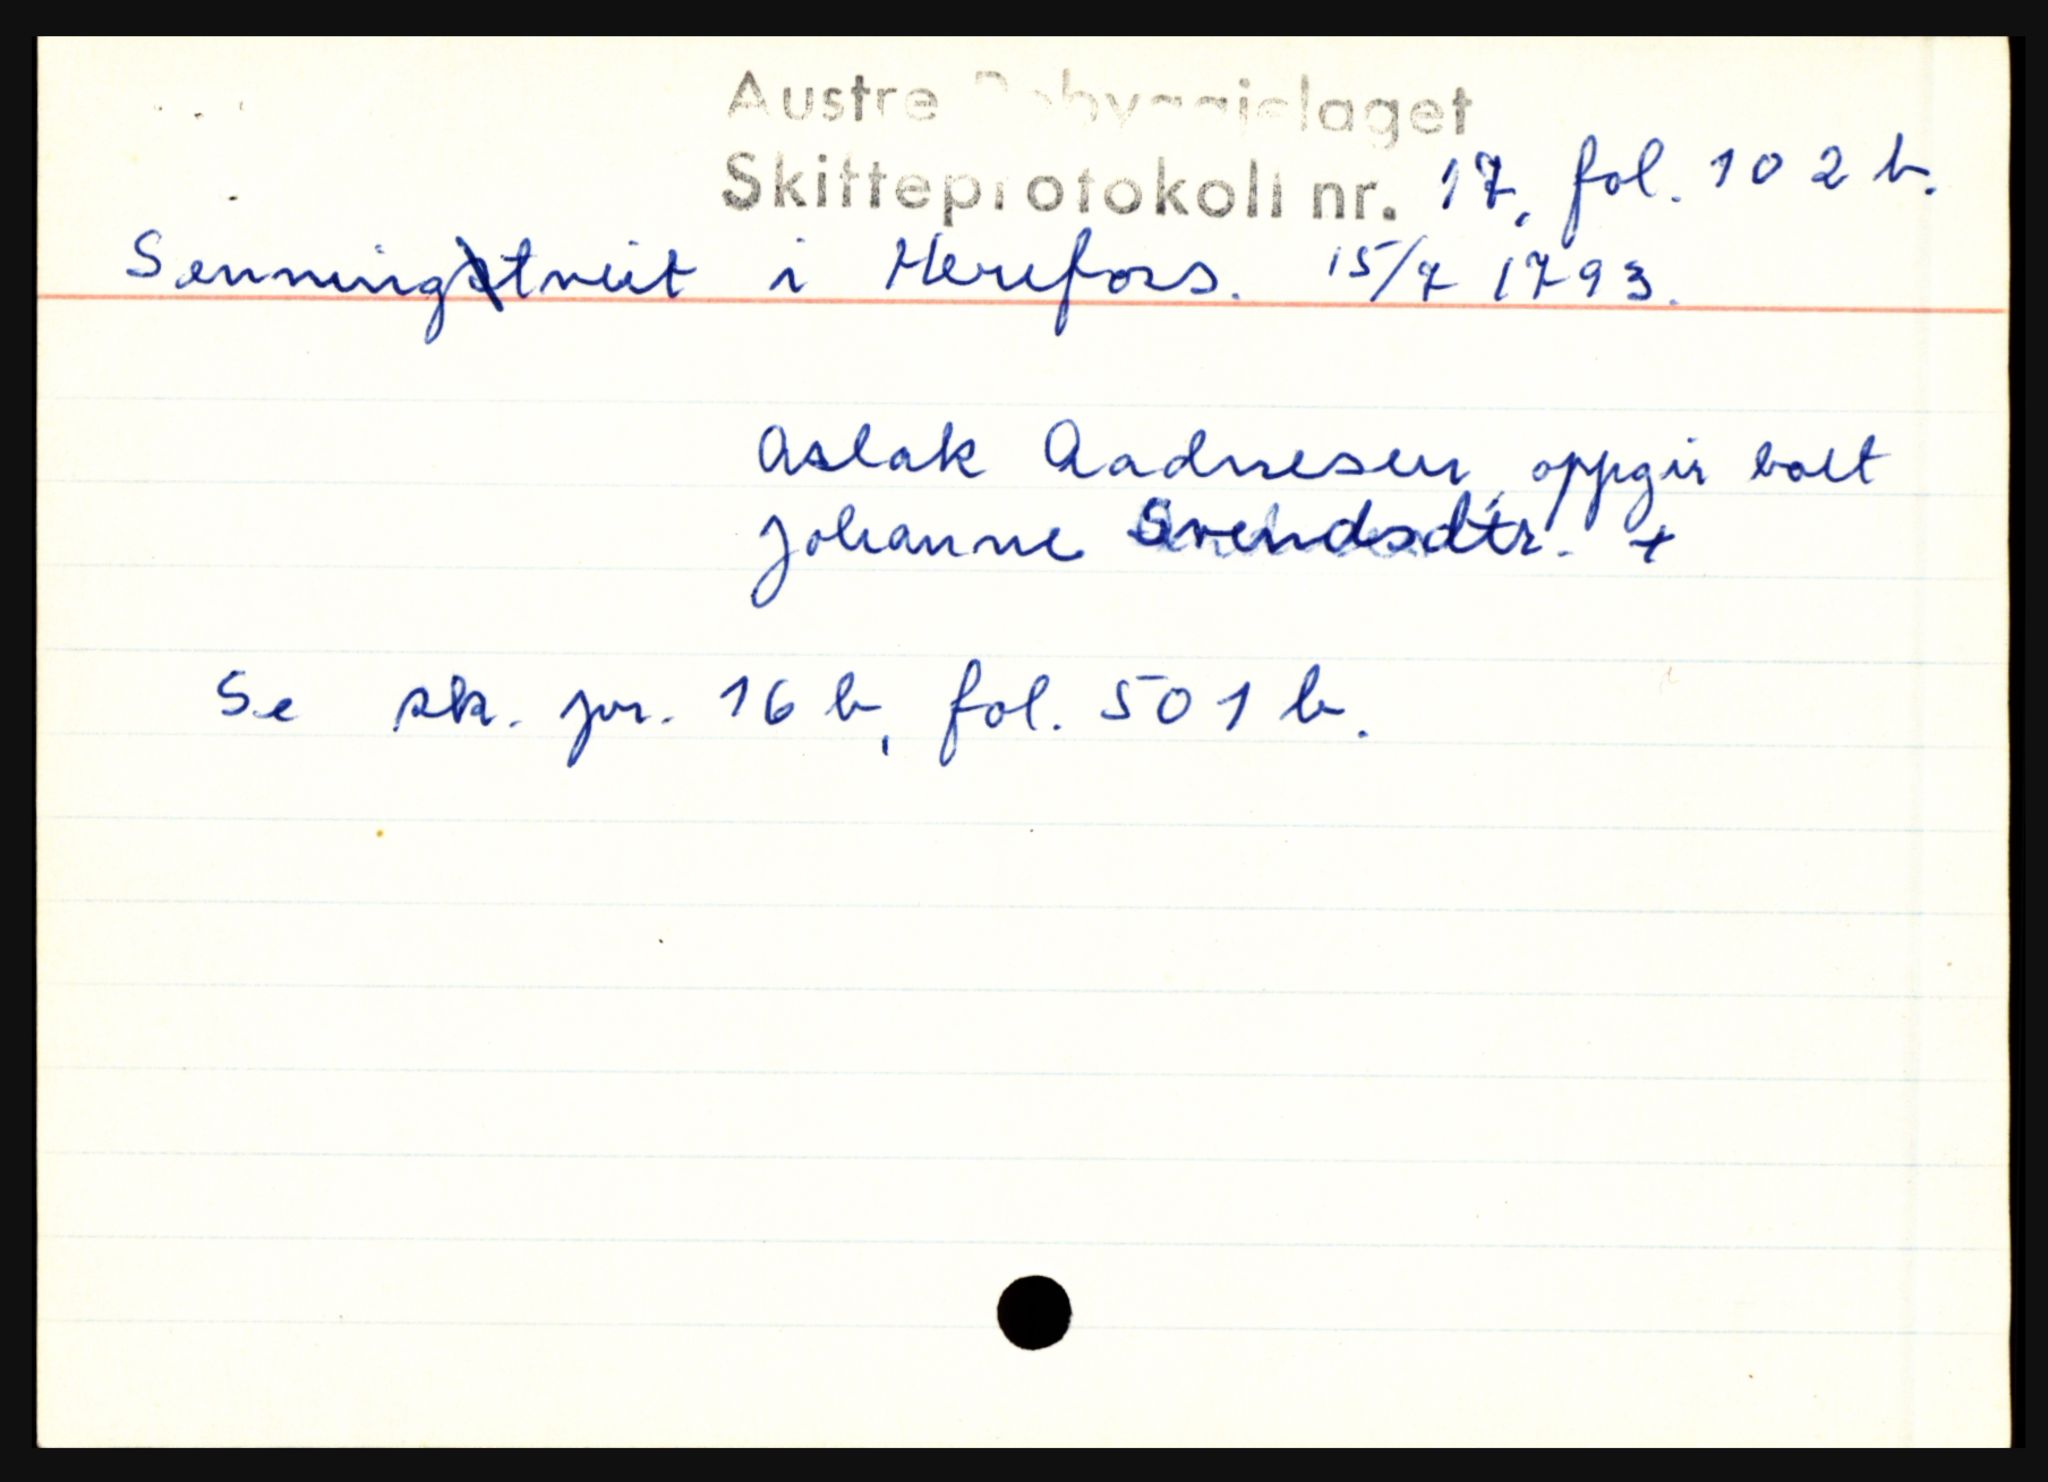 Austre Robyggjelaget
Skifteprotokoll nr. 17, fol. 102 b.
Senningtveit i Herefoss. 15/7 1793.
Aslak Aadnesen, oppgir boet
Johanne Svendsdtr. +
Se sk. pr. 16 b, fol. 501 b.